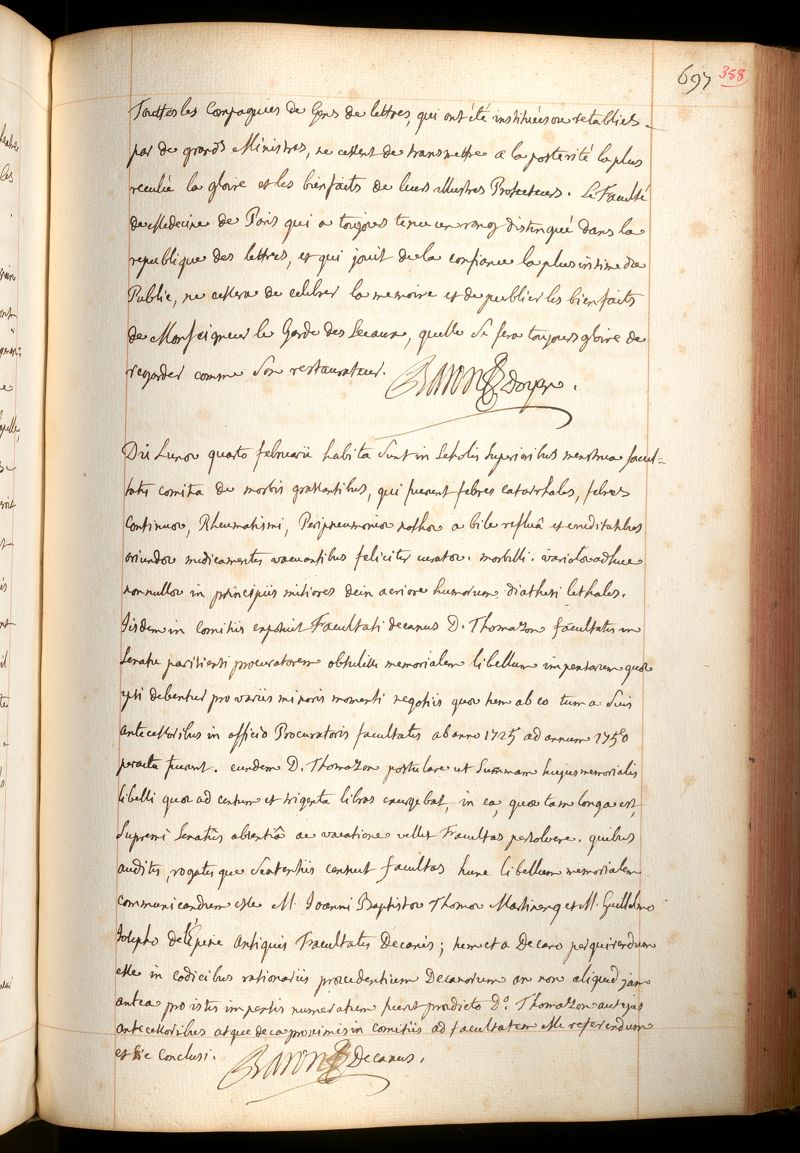 697 358
Touttes les Compagnies de Gens de lettres, qui ont été instituées ou retablies
par de grands Ministres, ne cessent de transmettre a la posterité la plus
reculée la gloire et les bienfaits de leurs illustres Protecteurs. La Faculté
de Medecine de Paris qui a toujours tenu un rang distingué dans la
republique des lettres, et qui jouit de la confiance la plus intime du
Public, ne cessera de celebrer la memoire et de publier les bienfaits
de Monseigneur le Garde des Sceaux, quelle se fera toujours gloire de
regarder comme son restaurateur. Baron Doyen.
Die Lunae quarto februarii habita sunt in Scholis superioribus menstrua facul=
tatis comitia de morbis grassantibus, qui fuerunt febres catarrhales, febres
continuae, Rheumatismi, Peripneumoniae nothae a bile refluâ et cruditatibus
oriundae medicamentis vacuantibus feliciter curatae. morbilli. variolae adhuc
nonnullae in principiis mitiores dein acriore humorum diathesi lethales.
Iisdem in Comitiis exposuit Facultati decanus D. Thomazon facultatis in
Senatu parisiensi procuratorem obtulisse memorialem libellum impensarum quae
ipsi debentur pro variis minoris momenti negotiis quae tum ab eo tum a suis
antecessoribus in officio Procuratoris facultatis ab anno 1725 ad annum 1750
peracta fuerunt. eundem D. Thomazon postulare ut summam hujus memorialis
libelli quae ad centum et triginta libras exurgebat, in ea, quae tam longa est,
Supremi Senatûs absentiâ ac vacatione vellet Facultas persolvere. quibus
auditis, rogatisque Sententiis censuit facultas hunc libellum memorialem
communicandum esse M. Joanni Baptistae Thomae Martinenq et M. Guillelmo
Josepho de l'Epine Antiquis Facultatis Decanis; tum et a Decano perquirendum
esse in codicibus rationariis praecedentium Decanorum an non aliquid jam
antea pro istis impensis numeratum fuerit praedicto D.o Thomazon aut ejus
antecessoribus atque de ea proximis in comitiis ad facultatem esse referendum
et sic Conclusi. Baron Decanus.